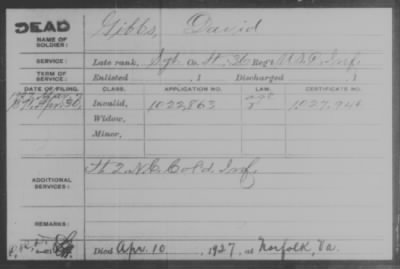 DEAD
NAME OF SOLDIER: Gibbs, David
SERVICE: Late rank, Sgt. Co. H, 36 Reg't U.S.C. Inf.
TERM OF SERVICE: Enlisted , 1 Discharged , 1
DATE OF FILING. CLASS. APPLICATION NO. LAW. CERTIFICATE NO.
Invalid, 1022,863 1,027,946
Widow,
Minor,
ADDITIONAL SERVICES: H 2 N.C. Cold. Inf.
REMARKS:
Died Apr. 10, 1927, at Norfolk, Va.